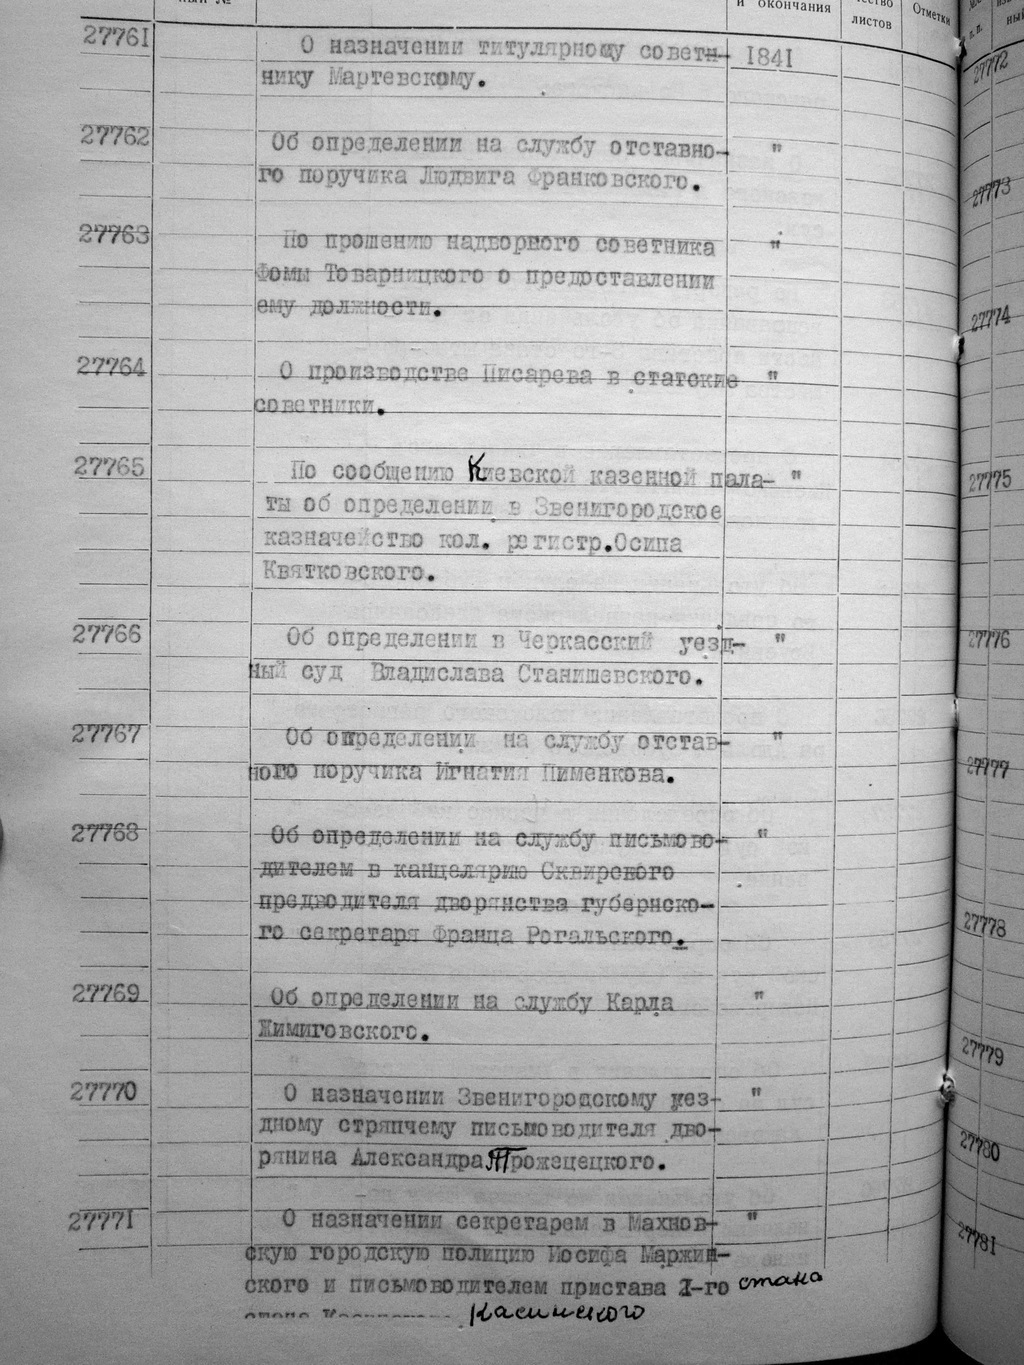 и окончания
листов
Отметки
27761 О назначении титулярному советн- 1841
нику Мартевскому.
27762 Об определении на службу отставно- "
го поручика Людвига Франковского.
27763 По прошению надворного советника "
Фомы Товарницкого о предоставлении
ему должности.
27764 О производстве Писарева в статские "
советники.
27765 По сообщению Киевской казенной пала- "
ты об определении в Звенигородское
казначейство кол. регистр.Осипа
Квятковского.
27766 Об определении в Черкасский уезд- "
ный суд Владислава Станишевского.
27767 Об определении на службу отстав- "
ного поручика Игнатия Пименкова.
27768 Об определении на службу письмово- "
дителем в канцелярию Сквирского
предводителя дворянства губернско-
го секретаря Франца Рогальского.
27769 Об определении на службу Карла "
Жимиговского.
27770 О назначении Звенигородскому уез- "
дному стряпчему письмоводителя дво-
рянина Александра Трожецецкого.
27771 О назначении секретарем в Махнов- "
скую городскую полицию Иосифа Маржин-
ского и письмоводителем пристава I-го стана
Касинского
27772
27773
27774
27775
27776
27777
27778
27779
27780
27781